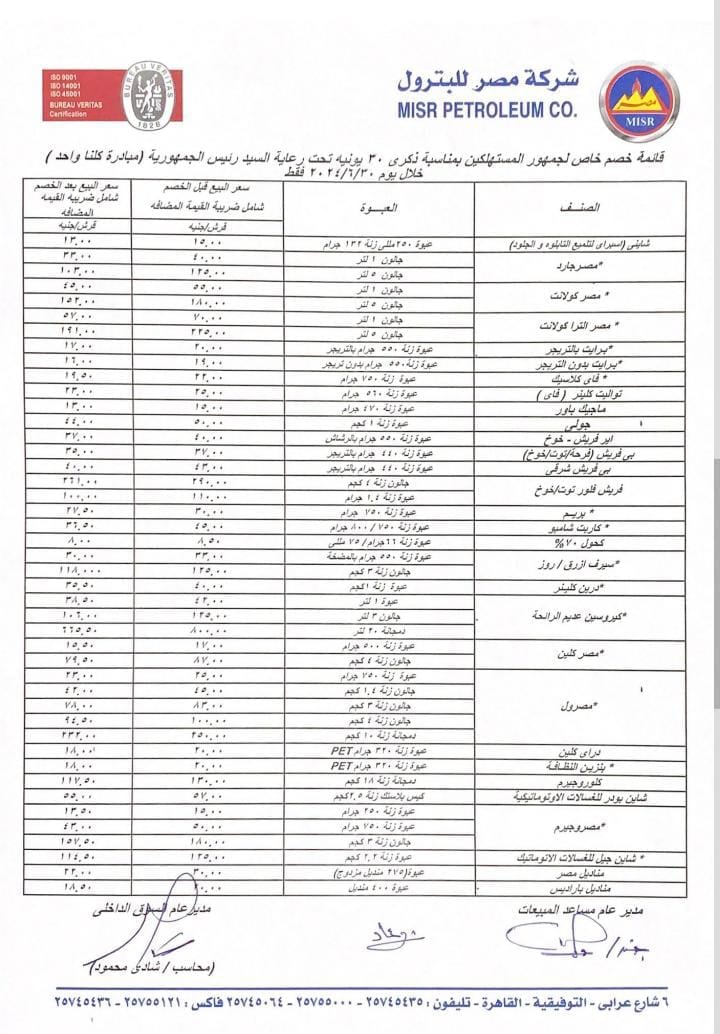 ISO 9001
ISO 14001
ISO 45001
BUREAU VERITAS
Certification
BUREAU VERITAS
1828
شركة مصر للبترول
MISR PETROLEUM CO.
MISR
قائمة خصم خاص لجمهور المستهلكين بمناسبة ذكرى ٣٠ يونيه تحت رعاية السيد رئيس الجمهورية (مبادرة كلنا واحد )
خلال يوم ٢٠٢٤/٦/٣٠ فقط
الصنف العبوة سعر البيع قبل الخصم شامل ضريبة القيمة المضافه سعر البيع بعد الخصم شامل ضريبة القيمه المضافه
قرش/جنيه قرش/جنيه
شايني (اسبراى لتلميع التابلوه و الجلود) عبوة ٢٥٠مللى زنة ١٣٢ جرام ١٥,٠٠ ١٣,٠٠
*مصرجارد جالون ١ لتر ٤٠,٠٠ ٣٣,٠٠
جالون ٥ لتر ١٢٥,٠٠ ١٠٣,٠٠
* مصر كولانت جالون ١ لتر ٥٥,٠٠ ٤٥,٠٠
جالون ٥ لتر ١٨٠,٠٠ ١٥٢,٠٠
* مصر الترا كولانت جالون ١ لتر ٧٠,٠٠ ٥٧,٠٠
جالون ٥ لتر ٢٢٥,٠٠ ١٩١,٠٠
*برايت بالتريجر عبوة زنة ٥٥٠ جرام بالتريجر ٢٠,٠٠ ١٧,٠٠
*برايت بدون التريجر عبوة زنة ٥٥٠ جرام بدون تريجر ١٩,٠٠ ١٦,٠٠
* فاى كلاسيك عبوة زنة ٧٥٠ جرام ٢٢,٠٠ ١٩,٥٠
تواليت كلينر ( فاى ) عبوة زنة ٥٦٠ جرام ٢٥,٠٠ ٢٣,٠٠
ماجيك باور عبوة زنة ٤٧٠ جرام ١٥,٠٠ ١٣,٠٠
جولى عبوة زنة ١ كجم ٥٠,٠٠ ٤٤,٠٠
اير فريش - خوخ عبوة زنة ٥٥٠ جرام بالرشاش ٤٠,٠٠ ٣٧,٠٠
بى فريش (فرحة/توت/خوخ) عبوة زنة ٤٤٠ جرام بالتريجر ٣٧,٠٠ ٣٥,٠٠
بى فريش شرقى عبوة زنة ٤٤٠ جرام بالتريجر ٤٣,٠٠ ٤٠,٠٠
فريش فلور توت/خوخ جالون زنة ٤ كجم ٢٩٠,٠٠ ٢٦١,٠٠
عبوة زنة ١,٤ جرام ١١٠,٠٠ ١٠٠,٠٠
* بريم عبوة زنة ٧٥٠ جرام ٣٠,٠٠ ٢٧,٥٠
* كاربت شامبو عبوة زنة ٧٥٠ / ٨٠٠ جرام ٤٥,٠٠ ٣٦,٥٠
كحول ٧٠% عبوة زنة ٦٦جرام/ ٧٥ مللى ٨,٥٠ ٨,٠٠
*سيرف ازرق / روز عبوة زنة ٥٥٠ جرام بالمضخة ٣٣,٠٠ ٣٠,٠٠
جالون زنة ٣ كجم ١٢٥,٠٠ ١١٨,٠٠٠
*درين كلينر عبوة زنة ١كجم ٤٠,٠٠ ٣٥,٥٠
*كيروسين عديم الرائحة عبوة ١ لتر ٤٢,٠٠ ٣٨,٥٠
جالون ٣ لتر ١٢٥,٠٠ ١٠٦,٠٠
دمجانة ٢٠ لتر ٨٠٠,٠٠ ٦٦٥,٥٠
*مصر كلين عبوة زنة ٥٠٠ جرام ١٧,٠٠ ١٥,٥٠
جالون زنة ٤ كجم ٨٧,٠٠ ٧٩,٥٠
*مصرول عبوة زنة ٧٥٠ جرام ٢٥,٠٠ ٢٣,٠٠
جالون زنة ١,٤ كجم ٤٥,٠٠ ٤٢,٠٠
جالون زنة ٣ كجم ٨٣,٠٠ ٧٨,٠٠
جالون زنة ٤ كجم ١٠٠,٠٠ ٩٤,٥٠
دمجانة زنة ١٠ كجم ٢٥٠,٠٠ ٢٣٢,٠٠
دراى كلين عبوة زنة ٣٢٠ جرام PET ٢٠,٠٠ ١٨,٠٠
* بنزين النظافة عبوة زنة ٣٢٠ جرام PET ٢٠,٠٠ ١٨,٠٠
كلوروجيرم دمجانة زنة ١٨ كجم ١٣٠,٠٠ ١١٧,٥٠
شاين بودر للغسالات الاوتوماتيكية كيس بلاستك زنة ٢,٥كجم ٥٧,٠٠ ٥٥,٠٠
*مصروجيرم عبوة زنة ٢٥٠ جرام ١٥,٠٠ ١٣,٥٠
عبوة زنة ٧٥٠ جرام ٥٠,٠٠ ٤٣,٠٠
جالون زنة ٣ كجم ١٨٠,٠٠ ١٥٧,٥٠
* شاين جيل للغسالات الاتوماتيك عبوة زنة ٢,٢ كجم ١٢٥,٠٠ ١١٤,٥٠
مناديل مصر عبوة(٢٧٥ منديل مزدوج) ٣٠,٠٠ ٢٢,٠٠
مناديل باراديس عبوة ٤٠٠ منديل ٢٠,٠٠ ١٨,٥٠
مدير عام مساعد المبيعات مدير عام السوق الداخلى
(محاسب / شادى محمود)
٦ شارع عرابى - التوفيقية - القاهرة - تليفون : ٢٥٧٤٥٤٣٥ - ٢٥٧٥٥٠٠٠ - ٢٥٧٤٥٠٦٤ فاكس : ٢٥٧٥٥١٢١ - ٢٥٧٤٥٤٣٦